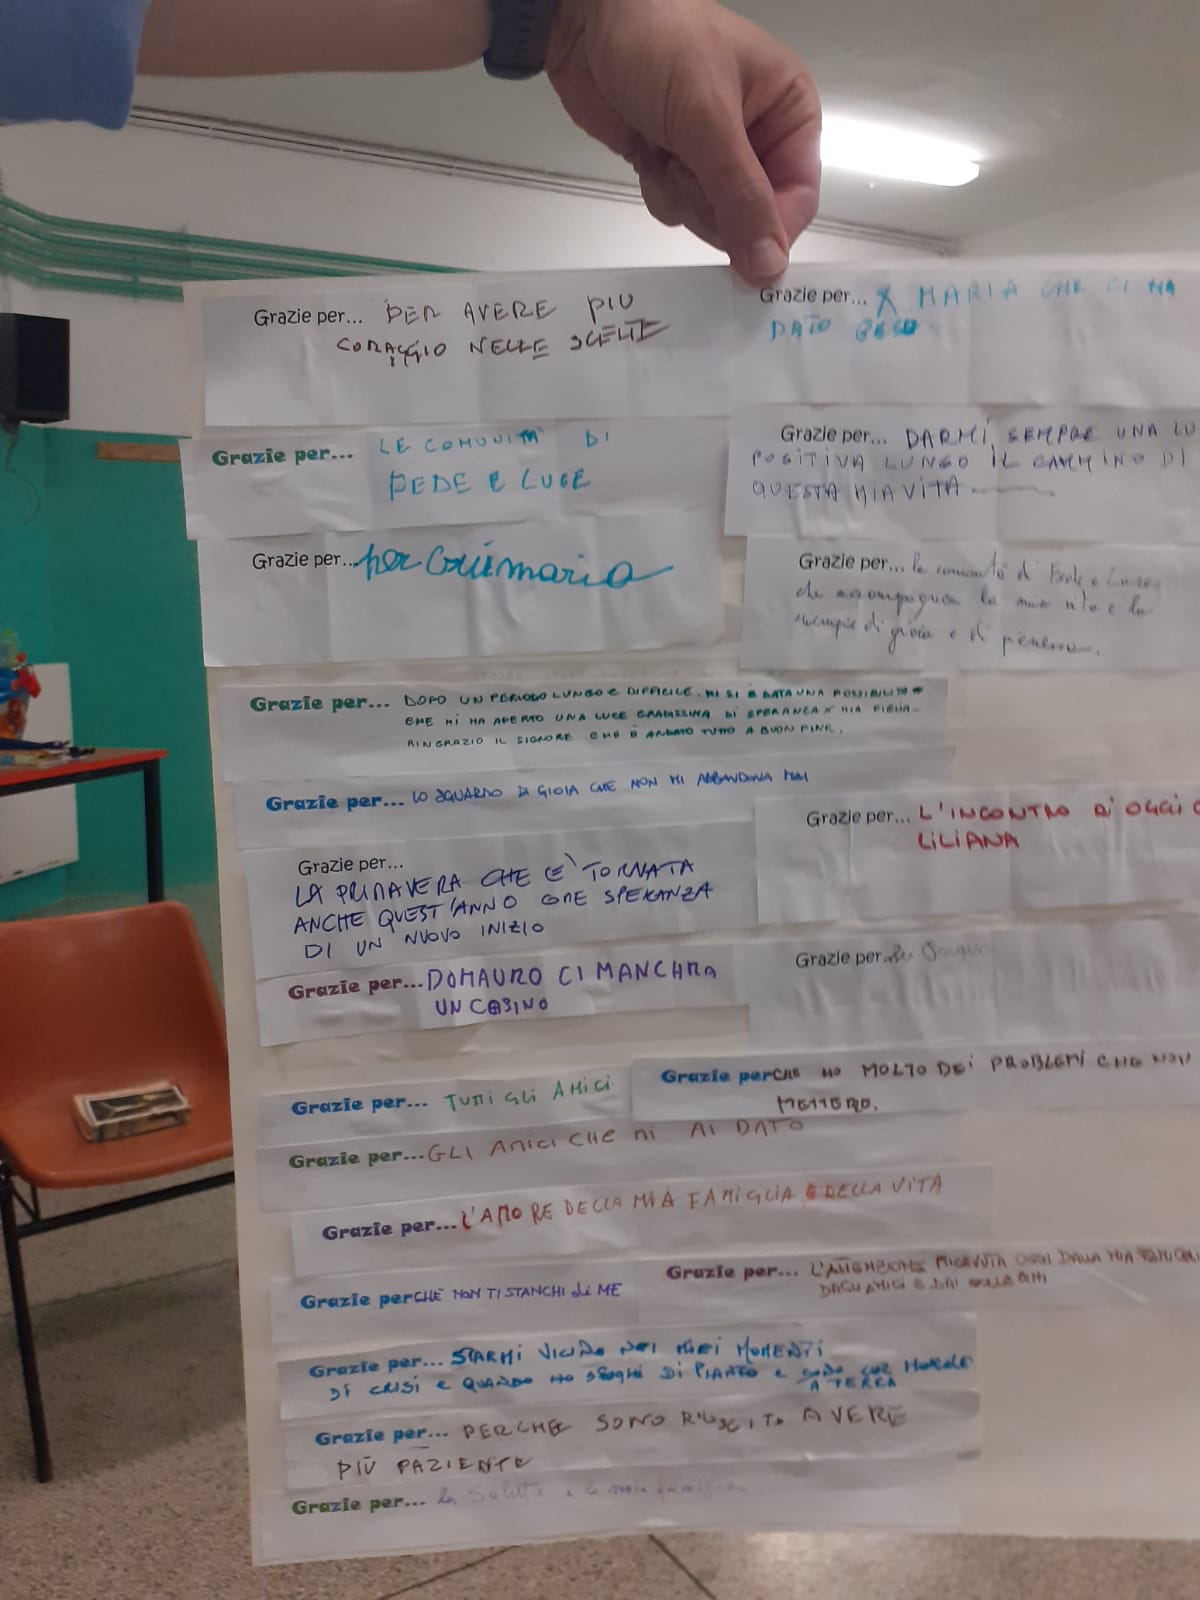 Grazie per... PER AVERE PIU
CORAGGIO NELLE SCELTE
Grazie per... X MARIA CHE CI HA
DATO
Grazie per... LE COMUNITA' DI
FEDE E LUCE
Grazie per... DARMI SEMPRE UNA LU
POSITIVA LUNGO IL CAMMINO DI
QUESTA MIA VITA
Grazie per... per
Grazie per... la comunità di Fede e Luce
che accompagna la mia vita e la
riempie di gioia e di
Grazie per... DOPO UN PERIODO LUNGO E DIFFICILE, MI SI È DATA UNA POSSIBILITÀ
CHE MI HA APERTO UNA LUCE GRADISSIMA DI SPERANZA X MIA FIGLIA.
RINGRAZIO IL SIGNORE CHE È ANDATO TUTTO A BUON FINE.
Grazie per... LO SGUARDO DI GIOIA CHE NON MI ABBANDONA MAI
Grazie per... L'INCONTRO DI OGGI C
LILIANA
Grazie per...
LA PRIMAVERA CHE E' TORNATA
ANCHE QUEST'ANNO COME SPERANZA
DI UN NUOVO INIZIO
Grazie per... DOMAURO CI MANCHRA
UN CASINO
Grazie per...
Grazie per... TUTTI GLI AMICI
Grazie perCHE HO MOLTO DEI PROBLEMI CHE NON
Grazie per... GLI AMICI CHE MI AI DATO
Grazie per... L'AMORE DELLA MIA FAMIGLIA E DELLA VITA
Grazie per... L'ATTENZIONE RICEVUTA OGGI DALLA MIA FAMIGLI
DAGLI AMICI E DAI
Grazie perCHÈ NON TI STANCHI di ME
Grazie per... STARMI VICINO NEI MIEI MOMENTI
DI CRISI E QUANDO HO SFOGHI DI PIANTO E SONO COL MORALE
A TERRA
Grazie per... PERCHE SONO RIUSCITO AVERE
PIÙ PAZIENTE
Grazie per... la salute e la mia famiglia